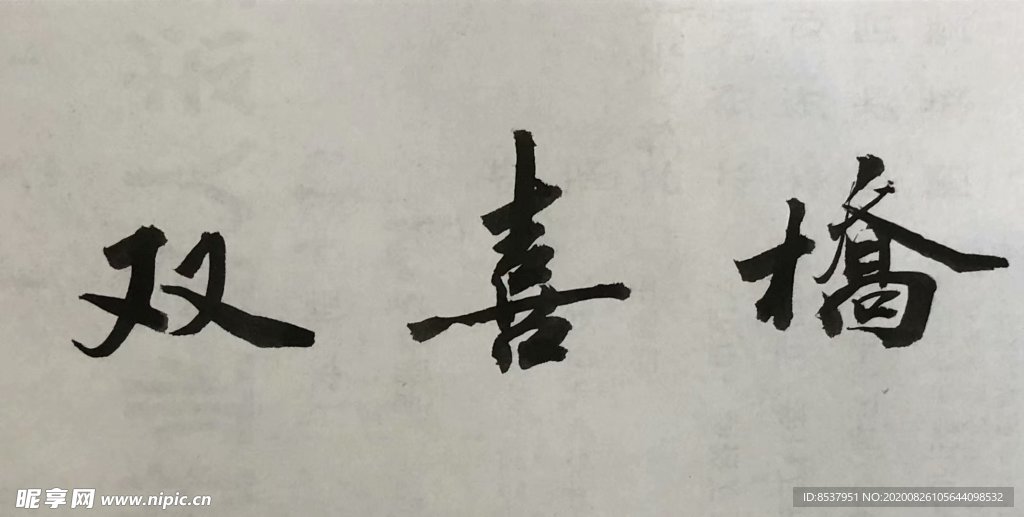 双喜橋
昵享网 www.nipic.cn
ID:8537951 NO:20200826105644098532